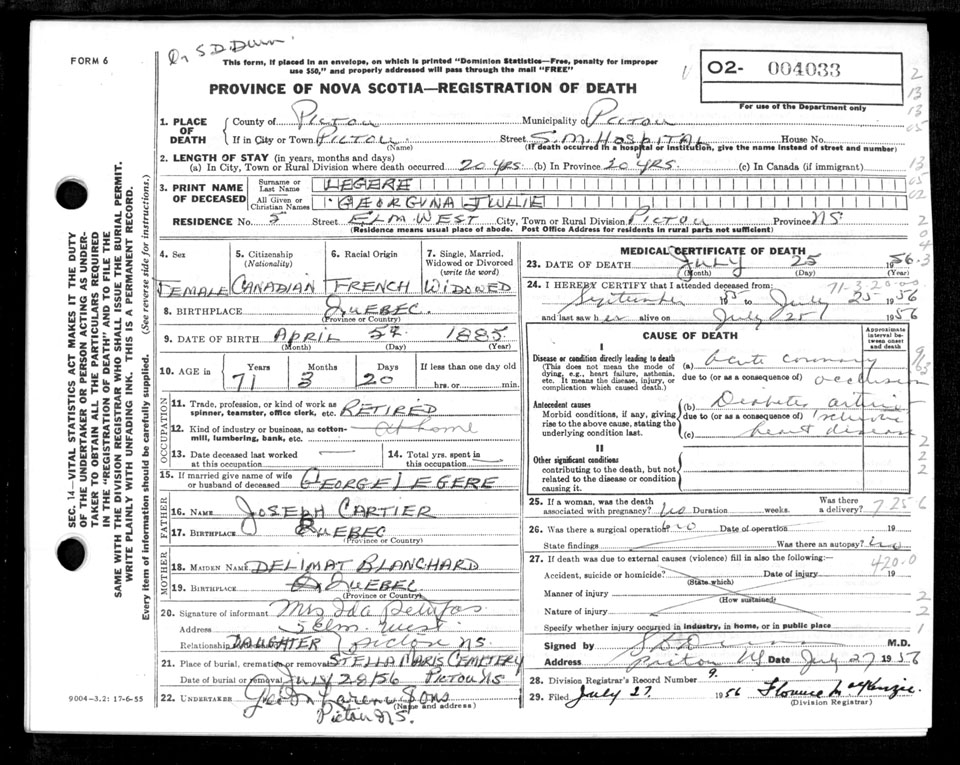 Dr S D Dunn
FORM 6
This form, if placed in an envelope, on which is printed "Dominion Statistics—Free, penalty for improper
use $50," and properly addressed will pass through the mail "FREE"
O2- 004033
For use of the Department only
PROVINCE OF NOVA SCOTIA—REGISTRATION OF DEATH
1. PLACE OF DEATH
County of PICTOU Municipality of PICTOU
If in City or Town PICTOU (Name) Street S.M. HOSPITAL House No.
(If death occurred in a hospital or institution, give the name instead of street and number)
2. LENGTH OF STAY (in years, months and days)
(a) In City, Town or Rural Division where death occurred 20 YRS. (b) In Province 20 YRS. (c) In Canada (if immigrant)
3. PRINT NAME OF DECEASED
Surname or Last Name LEGERE
All Given or Christian Names GEORGINA JULIE
RESIDENCE No. 5 Street ELM WEST City, Town or Rural Division PICTOU Province NS
(Residence means usual place of abode. Post Office Address for residents in rural parts not sufficient)
4. Sex
FEMALE
5. Citizenship (Nationality)
CANADIAN
6. Racial Origin
FRENCH
7. Single, Married, Widowed or Divorced (write the word)
WIDOWED
8. BIRTHPLACE QUEBEC
(Province or Country)
9. DATE OF BIRTH APRIL 5th 1885
(Month) (Day) (Year)
10. AGE in Years Months Days If less than one day
71 3 20 hrs. or min.
OCCUPATION
11. Trade, profession, or kind of work as spinner, teamster, office clerk, etc. RETIRED
12. Kind of industry or business, as cotton-mill, lumbering, bank, etc. at home
13. Date deceased last worked at this occupation —
14. Total yrs. spent in this occupation —
15. If married give name of wife or husband of deceased GEORGE LEGERE
FATHER
16. Name JOSEPH CARTIER
17. Birthplace QUEBEC
(Province or Country)
MOTHER
18. MAIDEN NAME DELIMAT BLANCHARD
19. Birthplace QUEBEC
(Province or Country)
20. Signature of informant Mrs Ida
Address 5 Elm West
Relationship DAUGHTER Pictou NS.
21. Place of burial, cremation or removal STELLA MARIS CEMETERY
Date of burial or removal JULY 28/56 PICTOU NS
22. UNDERTAKER Sons
(Name and address)
Pictou NS.
MEDICAL CERTIFICATE OF DEATH
23. DATE OF DEATH JULY 25 1956
(Month) (Day) (Year)
24. I HEREBY CERTIFY that I attended deceased from:
71-3-20-00
September 1955 to July 25 1956
and last saw her alive on July 25 1956
CAUSE OF DEATH
Approximate interval between onset and death
I
Disease or condition directly leading to death
(This does not mean the mode of dying, e.g., heart failure, asthenia, etc. It means the disease, injury, or complication which caused death.)
(a) Acute coronary
due to (or as a consequence of) occlusion
Antecedent causes
Morbid conditions, if any, giving rise to the above cause, stating the underlying condition last.
(b) Diabetes arterio
due to (or as a consequence of) sclerotic
(c) heart disease
II
Other significant conditions
contributing to the death, but not related to the disease or condition causing it.
25. If a woman, was the death associated with pregnancy? No Duration weeks. Was there a delivery?
7256
26. Was there a surgical operation? no Date of operation 19
State findings Was there an autopsy? no
27. If death was due to external causes (violence) fill in also the following:—
420.0
Accident, suicide or homicide? Date of injury 19
(State which)
Manner of injury
(How sustained)
Nature of injury
Specify whether injury occurred in industry, in home, or in public place
Signed by S D Dunn M.D.
Address Pictou NS Date July 27 1956
28. Division Registrar's Record Number 9.
29. Filed July 27. 1956 Florence MacKenzie
(Division Registrar)
SEC. 14—VITAL STATISTICS ACT MAKES IT THE DUTY
OF THE UNDERTAKER OR PERSON ACTING AS UNDER-
TAKER TO OBTAIN ALL THE PARTICULARS REQUIRED
IN THE "REGISTRATION OF DEATH" AND TO FILE THE
SAME WITH THE DIVISION REGISTRAR WHO SHALL ISSUE THE BURIAL PERMIT.
WRITE PLAINLY WITH UNFADING INK. THIS IS A PERMANENT RECORD.
Every item of information should be carefully supplied. (See reverse side for instructions.)
9004—3.2: 17-6-55